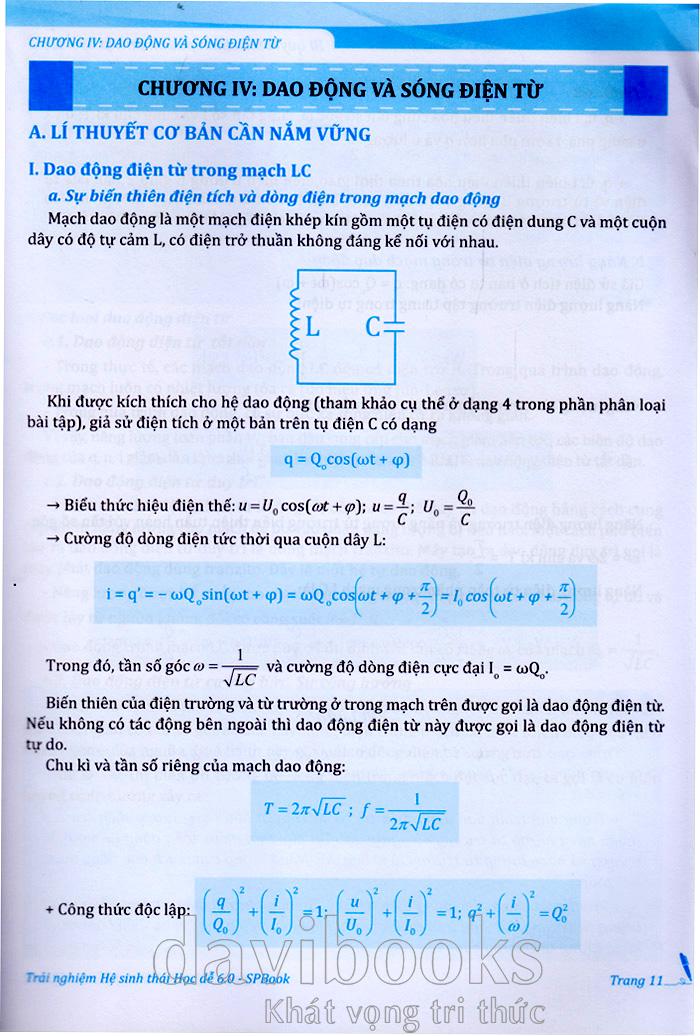 CHƯƠNG IV: DAO ĐỘNG VÀ SÓNG ĐIỆN TỪ
CHƯƠNG IV: DAO ĐỘNG VÀ SÓNG ĐIỆN TỪ
A. LÍ THUYẾT CƠ BẢN CẦN NẮM VỮNG
I. Dao động điện từ trong mạch LC
a. Sự biến thiên điện tích và dòng điện trong mạch dao động
Mạch dao động là một mạch điện khép kín gồm một tụ điện có điện dung C và một cuộn
dây có độ tự cảm L, có điện trở thuần không đáng kể nối với nhau.
L C
Khi được kích thích cho hệ dao động (tham khảo cụ thể ở dạng 4 trong phần phân loại
bài tập), giả sử điện tích ở một bản trên tụ điện C có dạng
q = Q₀cos(ωt + φ)
→ Biểu thức hiệu điện thế: u = U₀ cos(ωt + φ); u = q/C; U₀ = Q₀/C
→ Cường độ dòng điện tức thời qua cuộn dây L:
i = q' = − ωQ₀sin(ωt + φ) = ωQ₀cos(ωt + φ + π/2) = I₀ cos(ωt + φ + π/2)
Trong đó, tần số góc ω = 1/√LC và cường độ dòng điện cực đại I₀ = ωQ₀.
Biến thiên của điện trường và từ trường ở trong mạch trên được gọi là dao động điện từ.
Nếu không có tác động bên ngoài thì dao động điện từ này được gọi là dao động điện từ
tự do.
Chu kì và tần số riêng của mạch dao động:
T = 2π√LC ; f = 1/2π√LC
+ Công thức độc lập: (q/Q₀)² + (i/I₀)² = 1; (u/U₀)² + (i/I₀)² = 1; q² + (i/ω)² = Q₀²
davibooks
Trải nghiệm Hệ sinh thái Học dễ 6.0 - SPBook Trang 11
Khát vọng tri thức